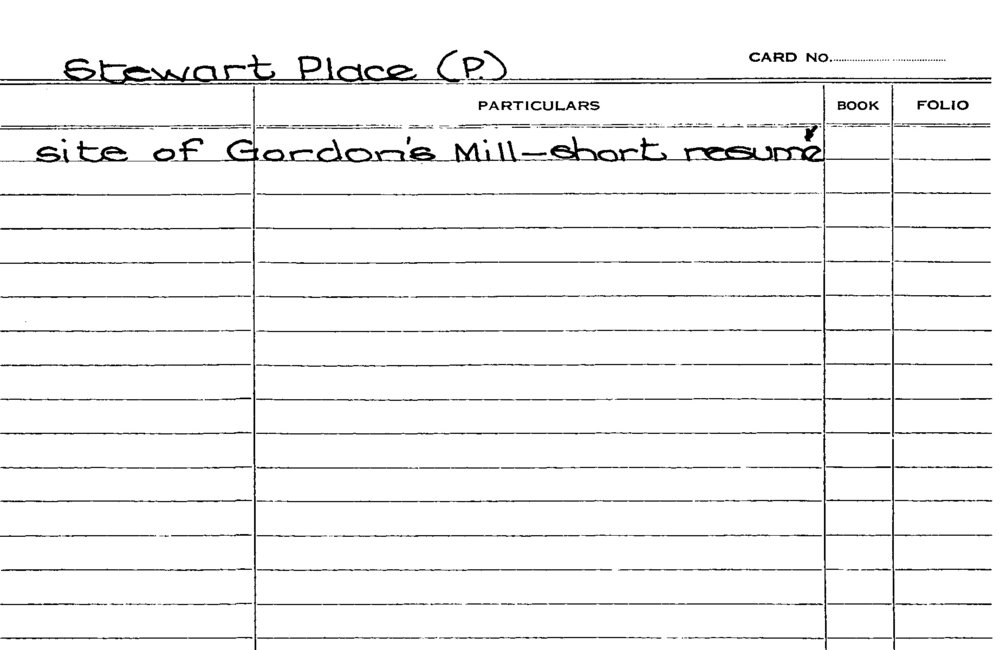 Stewart Place (P.)
CARD NO.
PARTICULARS BOOK FOLIO
site of Gordon's Mill—short resumé